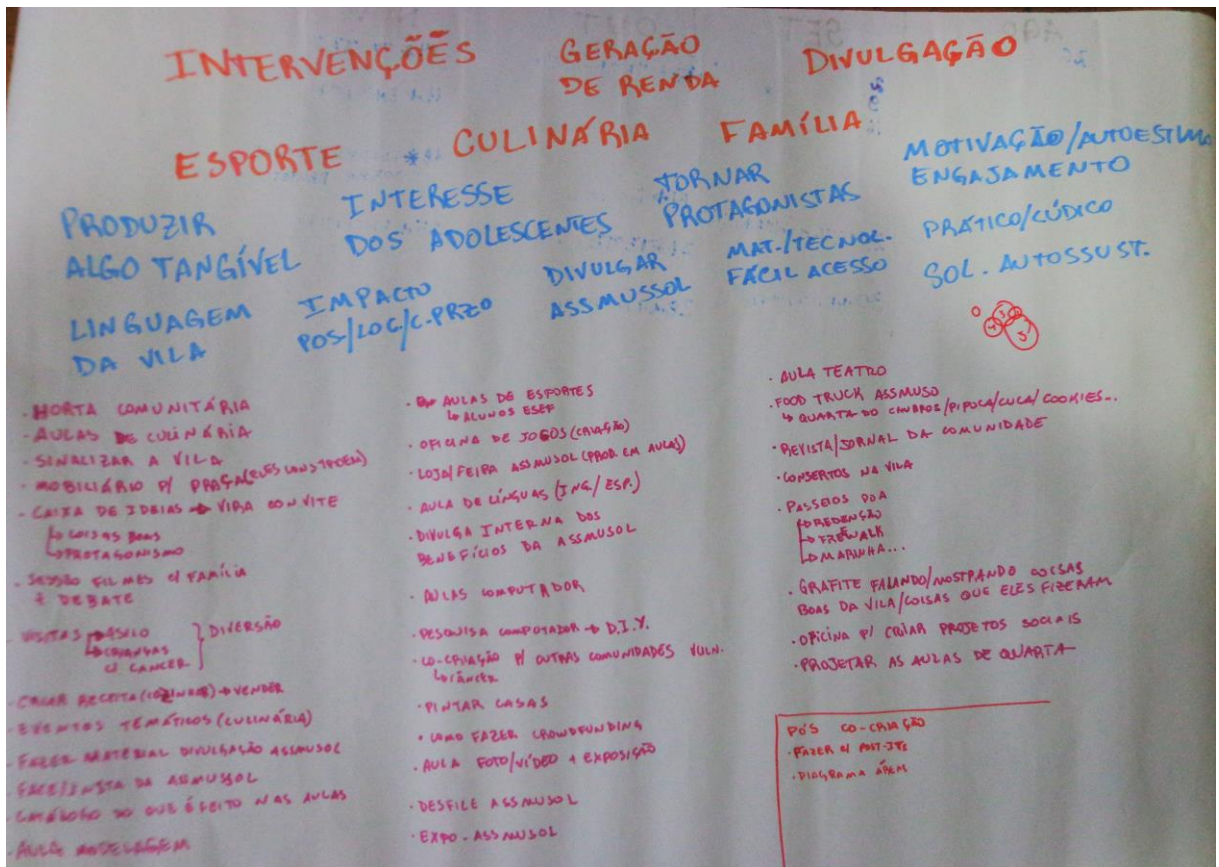 INTERVENÇÕES
GERAÇÃO
DE RENDA
DIVULGAÇÃO
ESPORTE * CULINÁRIA FAMÍLIA
PRODUZIR
ALGO TANGÍVEL
INTERESSE
DOS ADOLESCENTES
TORNAR
PROTAGONISTAS
MOTIVAÇÃO/AUTOESTIMA
ENGAJAMENTO
LINGUAGEM
DA VILA
IMPACTO
POS/LOC/C.PRZO
DIVULGAR
ASSMUSSOL
MAT./TECNOL.
FÁCIL ACESSO
PRÁTICO/LÚDICO
SOL. AUTOSSUST.
· HORTA COMUNITÁRIA
- AULAS DE CULINÁRIA
- SINALIZAR A VILA
- MOBILIÁRIO P/ PRAÇA (ELES CONSTROEM)
- CAIXA DE IDEIAS → VIRA CONVITE
↳ COISAS BOAS
↳ PROTAGONISMO
· SESSÃO FILMES C/ FAMÍLIA
+ DEBATE
- VISITAS → ASILO
↳ CRIANÇAS
C/ CANCER } DIVERSÃO
- CRIAR RECEITA (COZINHAR) → VENDER
- EVENTOS TEMÁTICOS (CULINÁRIA)
- FAZER MATERIAL DIVULGAÇÃO ASSMUSOL
- FACE/INSTA DA ASMUSSOL
- CATÁLOGO DO QUE É FEITO NAS AULAS
- AULA MODELAGEM
· AULAS DE ESPORTES
↳ ALUNOS ESEF
· OFICINA DE JOGOS (CRIAÇÃO)
· LOJA/FEIRA ASSMUSOL (PROD EM AULAS)
· AULA DE LÍNGUAS (ING./ESP.)
· DIVULGA INTERNA DOS
BENEFÍCIOS DA ASSMUSOL
· AULAS COMPUTADOR
· PESQUISA COMPUTADOR → D.I.Y.
· CO-CRIAÇÃO P/ OUTRAS COMUNIDADES VULN.
↳ CÂNCER
· PINTAR CASAS
· COMO FAZER CROWDFUNDING
· AULA FOTO/VÍDEO + EXPOSIÇÃO
· DESFILE ASSMUSOL
· EXPO-ASSMUSOL
· AULA TEATRO
· FOOD TRUCK ASSMUSO
↳ QUARTA DO CHURROS/PIPOCA/CUCA/COOKIES...
· REVISTA/JORNAL DA COMUNIDADE
· CONSERTOS NA VILA
· PASSEIOS POA
↳ REDENÇÃO
↳ FREEWALK
↳ MARINHA...
· GRAFITE FALANDO/MOSTRANDO COISAS
BOAS DA VILA/COISAS QUE ELES FIZERAM
· OFICINA P/ CRIAR PROJETOS SOCIAIS
· PROJETAR AS AULAS DE QUARTA
PÓS CO-CRIAÇÃO
· FAZER C/ POST-ITS
· DIAGRAMA